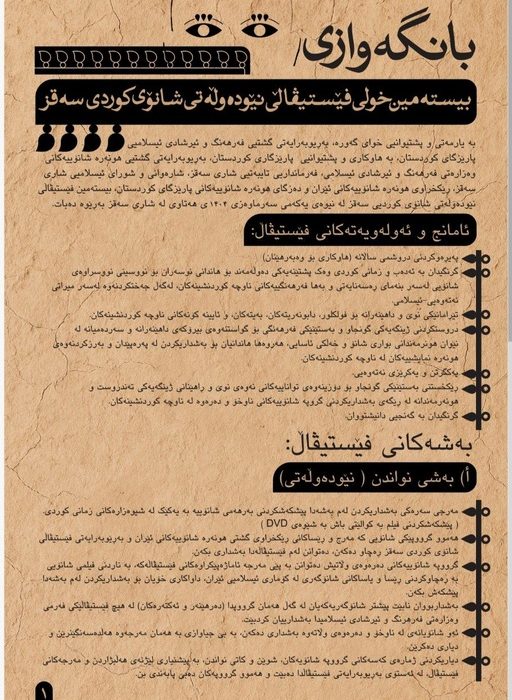 بانگەوازی/
بیستەمین خولی فێستیڤاڵی نێودەوڵەتی شانۆی کوردی سەقز
بە یارمەتی و پشتیوانیی خوای گەورە، بەڕێوبەرایەتی گشتیی فەرهەنگ و ئیرشادی ئیسلامیی
پارێزگای کوردستان، بە هاوکاری و پشتیوانیی پارێزگاری کوردستان، بەڕێوبەرایەتی گشتیی هونەرە شانۆییەکانی
وەزارەتی فەرهەنگ و ئیرشادی ئیسلامیی، فەرمانداریی تایبەتیی شاری سەقز، شارەوانی و شورای ئیسلامیی شاری
سەقز، رێکخراوی هونەرە شانۆییەکانی ئێران و دەزگای هونەرە شانۆییەکانی پارێزگای کوردستان، بیستەمین فێستیڤاڵی
نێودەوڵەتی شانۆی کوردیی سەقز لە نیوەی یەکەمی سەرماوەزی ١٤٠٤ ی هەتاوی لە شاری سەقز بەڕێوە دەبات.
ئامانج و ئەولەویەتەکانی فێستیڤاڵ:
پەیڕەوکردنی دروشمی ساڵانە (هاوکاری بۆ وەبەرهێنان)
گرنگیدان بە ئەدەب و زمانی کوردی وەک پشتێنەیەکی دەوڵەمەند بۆ هاندانی نوسەران بۆ نووسینی نووسراوەی
شانۆیی لەسەر بنەمای رەسەنایەتی و بەها فەرهەنگییەکانی ناوچە کوردنشینەکان، لەگەل جەختکردنەوە لەسەر میراتی
ئەتەوەیی-ئیسلامی.
تێڕامانێکی نوێ و داهێنەرانە بۆ فۆلکلۆر، دابونەریتەکان، بەیتەکان، و ئایینە کۆنەکانی ناوچە کوردنشینەکان.
دروستکردنی ژینگەیەکی گونجاو و بەستێنێکی فەرهەنگی بۆ گواستنەوەی بیرۆکەی داهێنەرانە و سەردەمیانە لە
نێوان هونەرمەندانی بواری شانۆ و خەڵکی ئاسایی، هەروەها هاندانیان بۆ بەشداریکردن لە پەرەپێدان و بەرزکردنەوەی
هونەرە نمایشییەکان لە ناوچە کوردنشینەکان.
یەکگرتن و یەکڕیزی نەتەوەیی.
رێکخستنی بەستێنێکی گونجاو بۆ دۆزینەوەی تواناییەکانی نەوەی نوێ و راهێنانی ژینگەیەکی تەندروست و
هونەرمەندانە لە رێگەی بەشداریکردنی گروپە شانۆییەکانی ناوخۆ و دەرەوە لە ناوچە کوردنشینەکان.
گرنگیدان بە گەنجیی دانیشتووان.
بەشەکانی فێستیڤاڵ:
أ) بەشی نواندن ( نێودەوڵەتی)
مەرجی سەرەکی بەشداریکردن لەم بەشەدا پێشکەشکردنی بەرهەمی شانۆییە بە یەکێک لە شیوەزارەکانی زمانی کوردی.
( پێشکەشکردنی فیلم بە کوالیتی باش بە شێوەی DVD )
هەموو گرووپێکی شانۆیی کە مەرج و رێساکانی رێکخراوی گشتی هونەرە شانۆییەکانی ئێران و بەڕێوبەرایەتی فێستیڤاڵی
شانۆی کوردی سەقز رەچاو دەکەن، دەتوانن لەم فێستیڤاڵەدا بەشداری بکەن.
گرووپە شانۆییەکانی دەرەوەی وڵاتیش دەتوانن بە پێی مەرجە ئاماژەپێکراوەکانی فێستیڤاڵەکە، بە ناردنی فیلمی شانۆیی
بە رەچاوکردنی رێسا و یاساکانی شانۆگەری لە کۆماری ئیسلامیی ئێران، داواکاری خۆیان بۆ بەشداریکردن لەم بەشەدا
پێشکەش بکەن.
بەشداربووان نابێت پێشتر شانۆگەریەکەیان لە گەل هەمان گرووپدا (دەرهێنەر و ئەکتەرەکان) لە هیچ فێستیڤاڵێکی فەرمی
وەزارەتی فەرهەنگ و ئیرشادی ئیسلامیدا بەشدارییان کردبێت.
ئەو شانۆیانەی لە ناوخۆ و دەرەوەی وڵاتەوە بەشداری دەکەن، بە بێ جیاوازی بە هەمان مەرجەوە هەڵدەسەنگێنرێن و
دیاری دەکرێن.
دیاریکردنی ژمارەی کەسەکانی گرووپە شانۆیەکان، شوێن و کاتی نواندن، بە پێشنیاری لێژنەی هەڵبژاردن و مەرجەکانی
فێستیڤاڵ، لە ئەستۆی بەڕێوبەرایەتی فێستیڤاڵدا دەبێت و هەموو گرووپەکان دەبێ پابەندی بن.
١